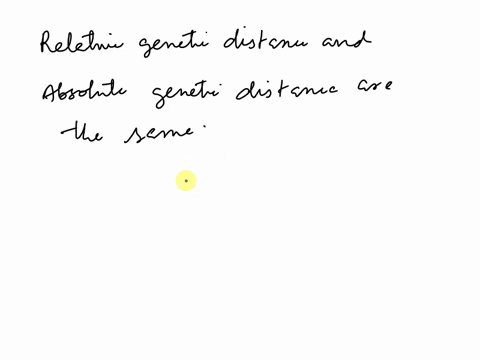 Reletive genetic distance and
Absolute genetic distance are
the same.